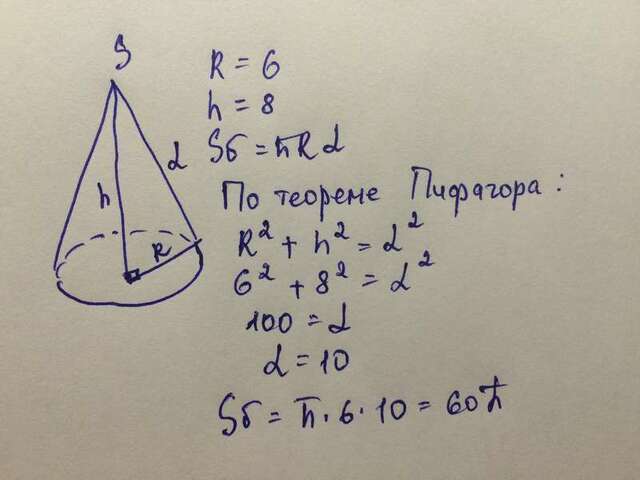 S
h
L
R
R = 6
h = 8
Sб = πRL
По теореме Пифагора:
R² + h² = L²
6² + 8² = L²
100 = L
L = 10
Sб = π · 6 · 10 = 60π